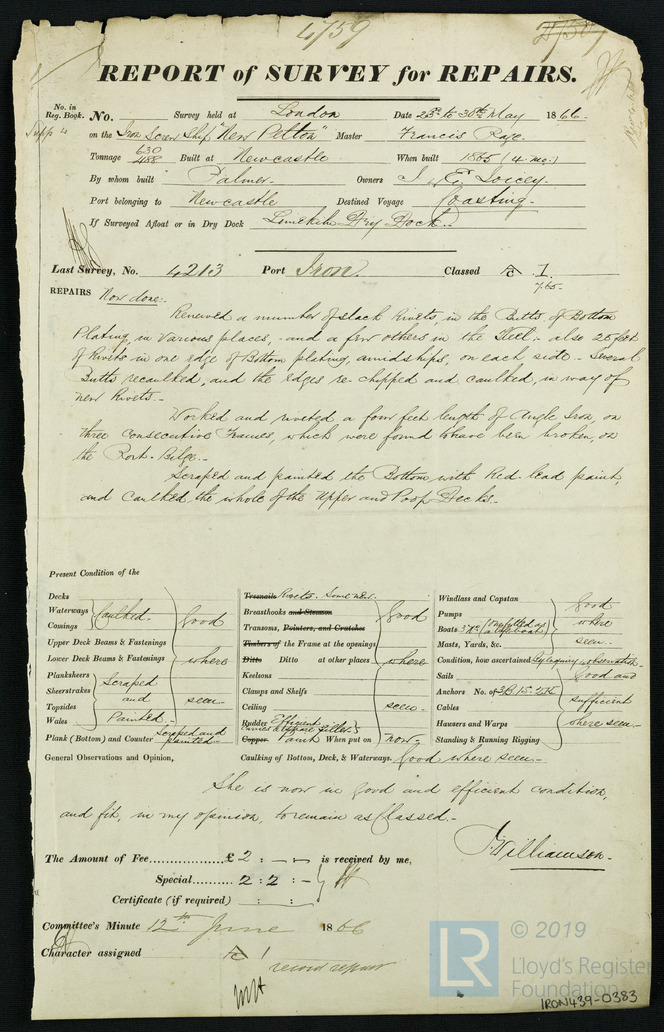 4759
REPORT of SURVEY for REPAIRS.
No. in Reg. Book. No. Survey held at London Date 23rd to 30th May 1866.
Supp 4 on the Iron Screw Ship "New Pelton" Master Francis Page.
Tonnage 630 488 Built at Newcastle When built 1865 (4 mo.)
By whom built Palmer. Owners
Port belonging to Newcastle Destined Voyage Coasting.
If Surveyed Afloat or in Dry Dock Limekiln Dry Dock.
Last Survey, No. 4213 Port Iron. Classed A 1. 7,65.
REPAIRS Now done:-
Renewed a number of slack Rivets, in the Butts of Bottom
Plating, in various places, - and a few others in the Keel, - also 25 feet
of Rivets in one edge of Bottom plating, amidships, on each side - Several
Butts recaulked, and the edges re-chipped and caulked, in way of
new Rivets.-
Worked and riveted a four feet length of Angle Iron, on
three consecutive Frames, which were found to have been broken, on
the Port Bilge.-
Scraped and painted the Bottom with Red-lead paint,
and caulked the whole of the Upper and Poop Decks.-
Present Condition of the
Decks
Waterways
Comings
Caulked.
Upper Deck Beams & Fastenings
Lower Deck Beams & Fastenings
Planksheers
Sheerstrakes
Topsides
Wales
Scraped and Painted.-
Plank (Bottom) and Counter scraped and painted.-
Good where seen
Treenails Rivets. Some new.
Breasthooks and Stemson
Transoms, Pointers, and Crutches
Timbers of the Frame at the openings
Ditto Ditto at other places
Keelsons
Clamps and Shelfs
Ceiling
Rudder Efficient
Copper. Paint When put on now-
Good where seen.-
Caulking of Bottom, Deck, & Waterways. Good where seen.-
Windlass and Capstan
Pumps
Boats
Masts, Yards, &c.
Good where seen.
Condition, how ascertained By enquiry & observation.
Sails
Anchors No. of
Cables
Hawsers and Warps
Standing & Running Rigging
Good and sufficient where seen.-
General Observations and Opinion,
She is now in good and efficient condition,
and fit, in my opinion, to remain as Classed.-
J. Williamson.-
The Amount of Fee £2 : - - is received by me,
Special 2 : 2 : -
Certificate (if required) : :
Committee's Minute 12th June 1866
Character assigned A 1
record report
© 2019
LR
Lloyd's Register
Foundation
IRON439-0383